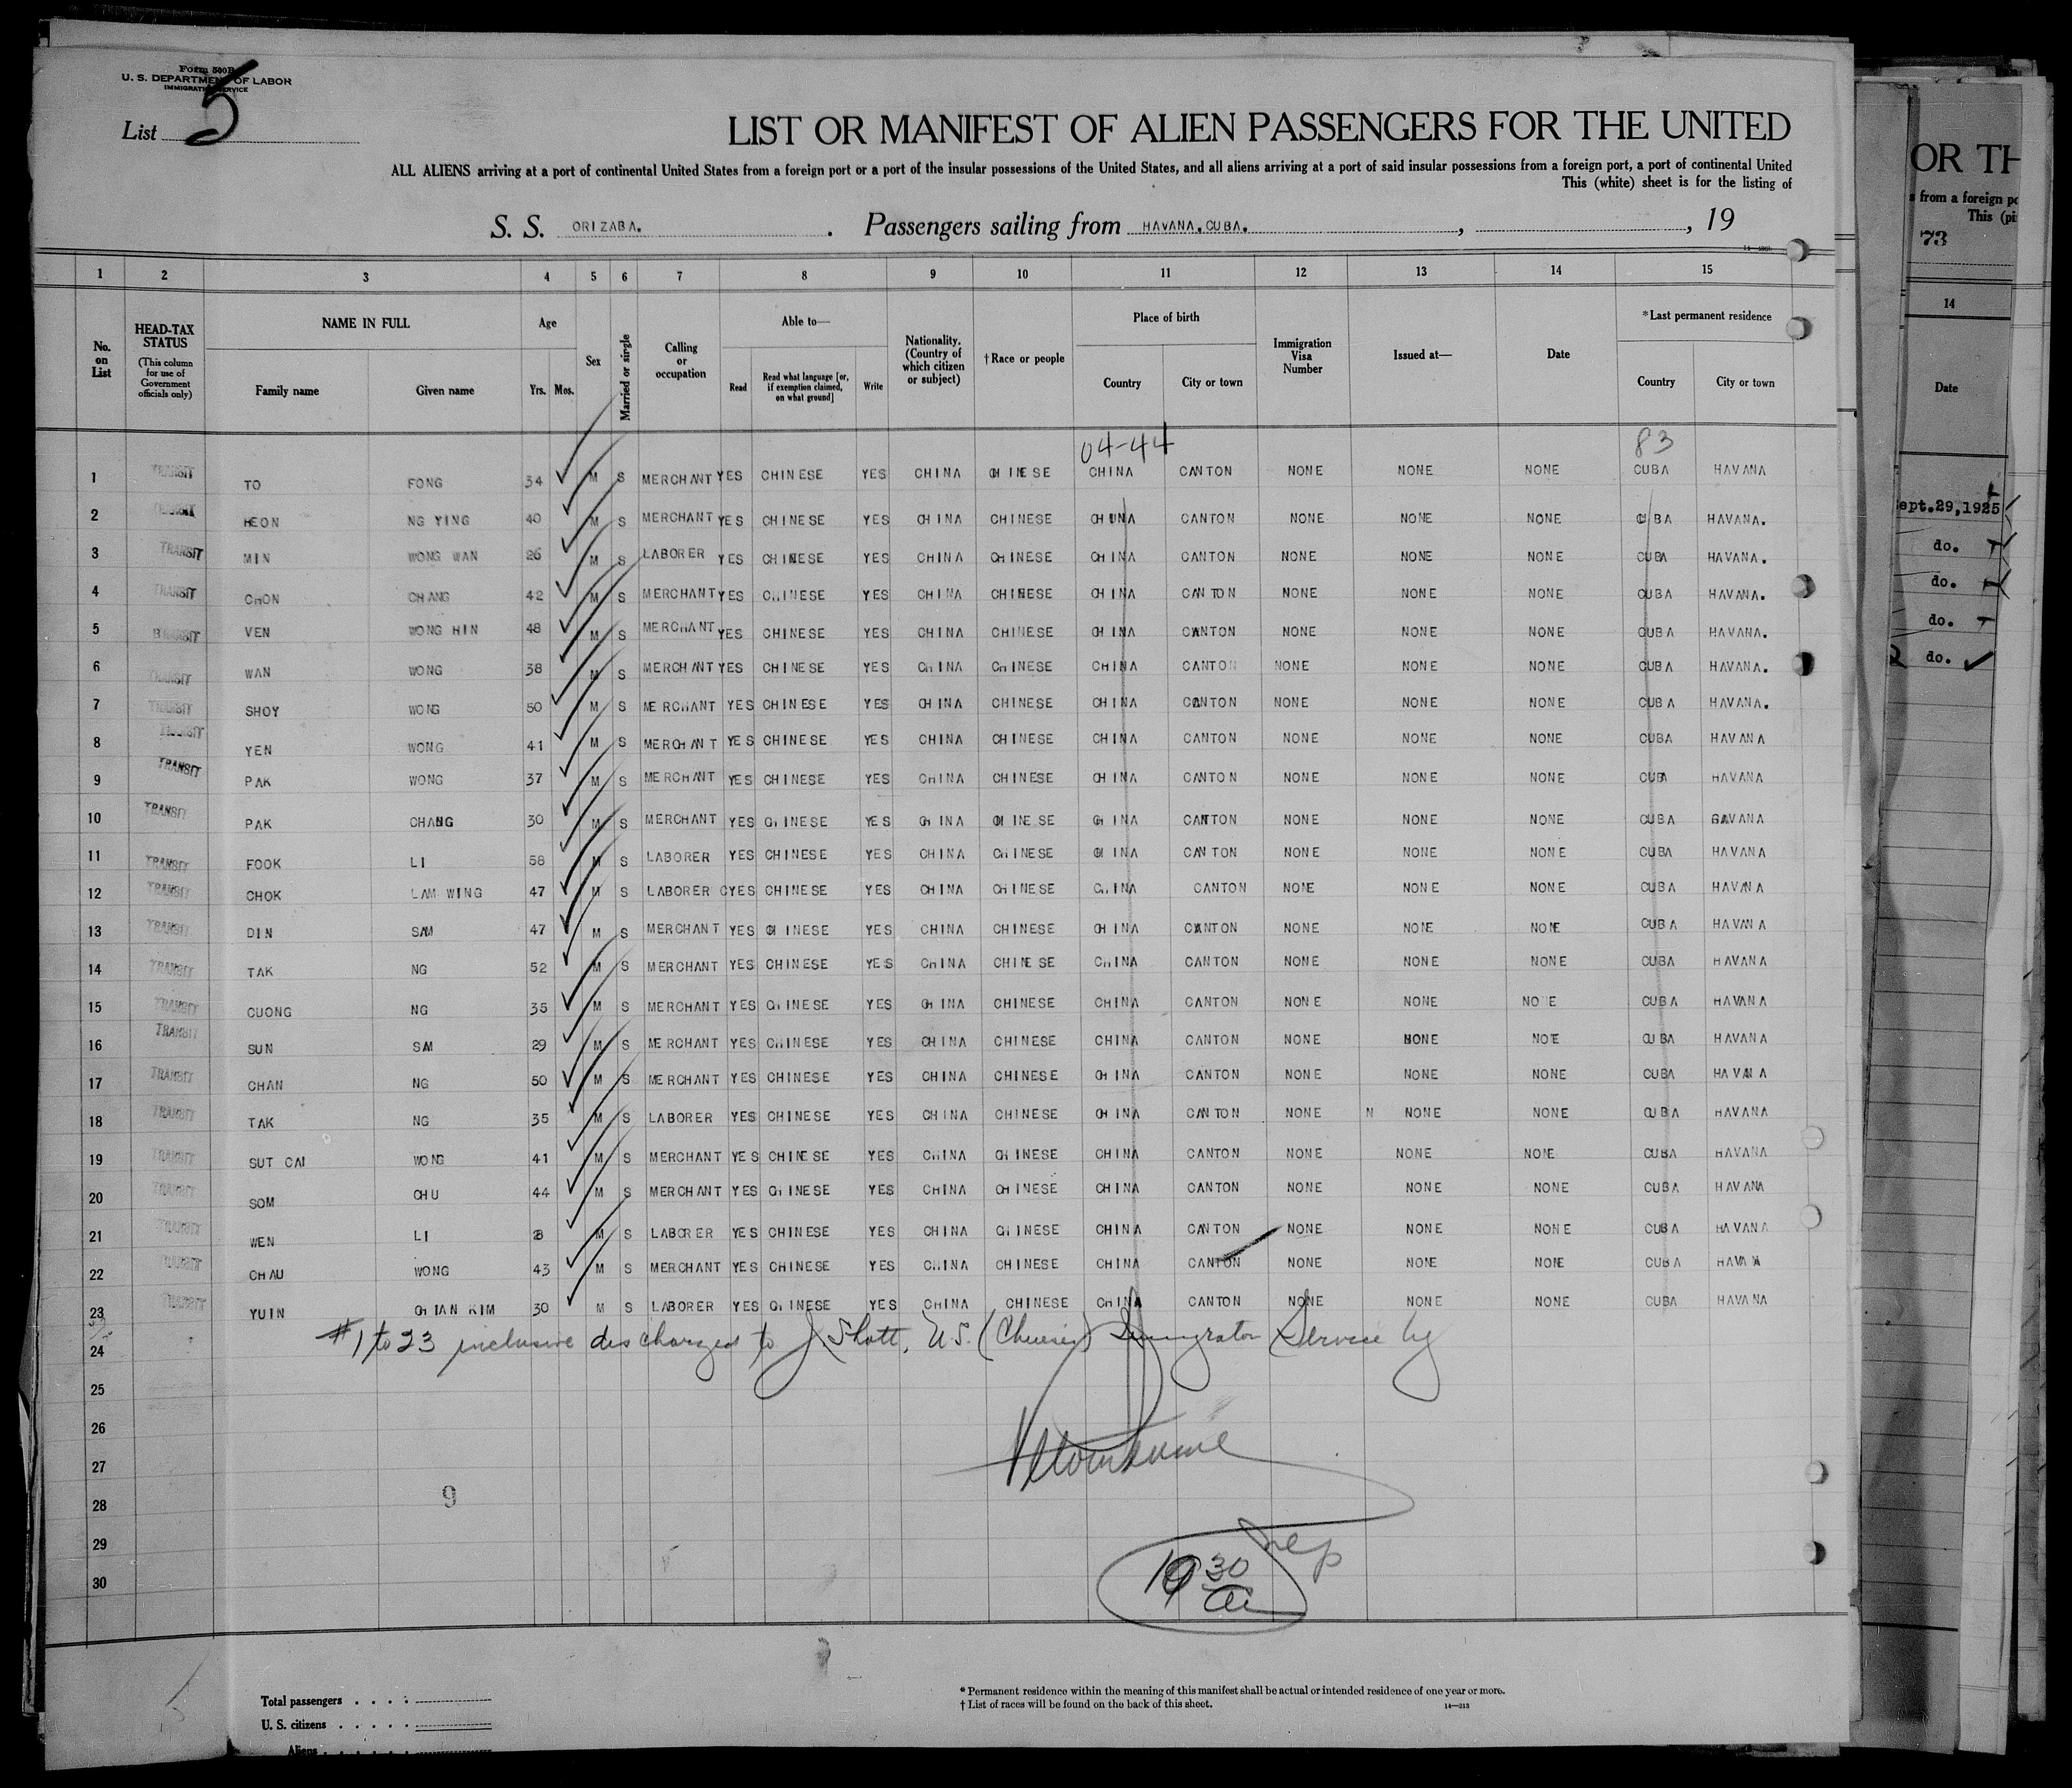 Form 500B
U. S. DEPARTMENT OF LABOR
IMMIGRATION SERVICE
List 5
LIST OR MANIFEST OF ALIEN PASSENGERS FOR THE UNITED
ALL ALIENS arriving at a port of continental United States from a foreign port or a port of the insular possessions of the United States, and all aliens arriving at a port of said insular possessions from a foreign port, a port of continental United
This (white) sheet is for the listing of
S. S. ORIZABA. Passengers sailing from HAVANA.CUBA. , , 19
1 2 3 4 5 6 7 8 9 10 11 12 13 14 15
No. on List HEAD-TAX STATUS (This column for use of Government officials only) NAME IN FULL Family name Given name Age Yrs. Mos. Sex Married or single Calling or occupation Able to— Read Read what language [or, if exemption claimed, on what ground] Write Nationality. (Country of which citizen or subject) †Race or people Place of birth Country City or town Immigration Visa Number Issued at— Date *Last permanent residence Country City or town
04-44 83
1 TRANSIT TO FONG 34 M S MERCHANT YES CHINESE YES CHINA CHINESE CHINA CANTON NONE NONE NONE CUBA HAVANA
2 TRANSIT HEON NG YING 40 M S MERCHANT YES CHINESE YES CHINA CHINESE CHUNA CANTON NONE NONE NONE CUBA HAVANA.
3 TRANSIT MIN WONG WAN 26 M S LABORER YES CHINESE YES CHINA CHINESE CHINA CANTON NONE NONE NONE CUBA HAVANA.
4 TRANSIT CHON CHANG 42 M S MERCHANT YES CHINESE YES CHINA CHINESE CHINA CANTON NONE NONE NONE CUBA HAVANA.
5 TRANSIT VEN WONG HIN 48 M S MERCHANT YES CHINESE YES CHINA CHINESE CHINA CANTON NONE NONE NONE CUBA HAVANA.
6 TRANSIT WAN WONG 38 M S MERCHANT YES CHINESE YES CHINA CHINESE CHINA CANTON NONE NONE NONE CUBA HAVANA.
7 TRANSIT SHOY WONG 50 M S MERCHANT YES CHINESE YES CHINA CHINESE CHINA CANTON NONE NONE NONE CUBA HAVANA.
8 TRANSIT YEN WONG 41 M S MERCHANT YES CHINESE YES CHINA CHINESE CHINA CANTON NONE NONE NONE CUBA HAVANA
9 TRANSIT PAK WONG 37 M S MERCHANT YES CHINESE YES CHINA CHINESE CHINA CANTON NONE NONE NONE CUBA HAVANA
10 TRANSIT PAK CHANG 30 M S MERCHANT YES CHINESE YES CHINA CHINESE CHINA CANTON NONE NONE NONE CUBA HAVANA
11 TRANSIT FOOK LI 58 M S LABORER YES CHINESE YES CHINA CHINESE CHINA CANTON NONE NONE NONE CUBA HAVANA
12 TRANSIT CHOK LAM WING 47 M S LABORER YES CHINESE YES CHINA CHINESE CHINA CANTON NONE NONE NONE CUBA HAVANA
13 TRANSIT DIN SAM 47 M S MERCHANT YES CHINESE YES CHINA CHINESE CHINA CANTON NONE NONE NONE CUBA HAVANA
14 TRANSIT TAK NG 52 M S MERCHANT YES CHINESE YES CHINA CHINESE CHINA CANTON NONE NONE NONE CUBA HAVANA
15 TRANSIT CUONG NG 35 M S MERCHANT YES CHINESE YES CHINA CHINESE CHINA CANTON NONE NONE NO E CUBA HAVANA
16 TRANSIT SUN SAM 29 M S MERCHANT YES CHINESE YES CHINA CHINESE CHINA CANTON NONE NONE NONE CUBA HAVANA
17 TRANSIT CHAN NG 50 M S MERCHANT YES CHINESE YES CHINA CHINESE CHINA CANTON NONE NONE NONE CUBA HAVANA
18 TRANSIT TAK NG 35 M S LABORER YES CHINESE YES CHINA CHINESE CHINA CANTON NONE N NONE NONE CUBA HAVANA
19 TRANSIT SUT CAI WONG 41 M S MERCHANT YES CHINESE YES CHINA CHINESE CHINA CANTON NONE NONE NONE CUBA HAVANA
20 TRANSIT SOM CHU 44 M S MERCHANT YES CHINESE YES CHINA CHINESE CHINA CANTON NONE NONE NONE CUBA HAVANA
21 TRANSIT WEN LI M S LABORER YES CHINESE YES CHINA CHINESE CHINA CANTON NONE NONE NONE CUBA HAVANA
22 TRANSIT CHAU WONG 43 M S MERCHANT YES CHINESE YES CHINA CHINESE CHINA CANTON NONE NONE NONE CUBA HAVANA
23 TRANSIT YUIN CHAN KIM 30 M S LABORER YES CHINESE YES CHINA CHINESE CHINA CANTON NONE NONE NONE CUBA HAVANA
#1 to 23 inclusive discharged to J. Shott, U.S. (Chinese) Immigration Service by
24
25
26
27
28 9
29
30 10 30
Total passengers . . . .
U. S. citizens . . . . .
Aliens . . . . . .
* Permanent residence within the meaning of this manifest shall be actual or intended residence of one year or more.
† List of races will be found on the back of this sheet.
14—213
OR TH
s from a foreign po
This (pi
73
14
Date
ept.29,1925
do.
do.
do.
do.